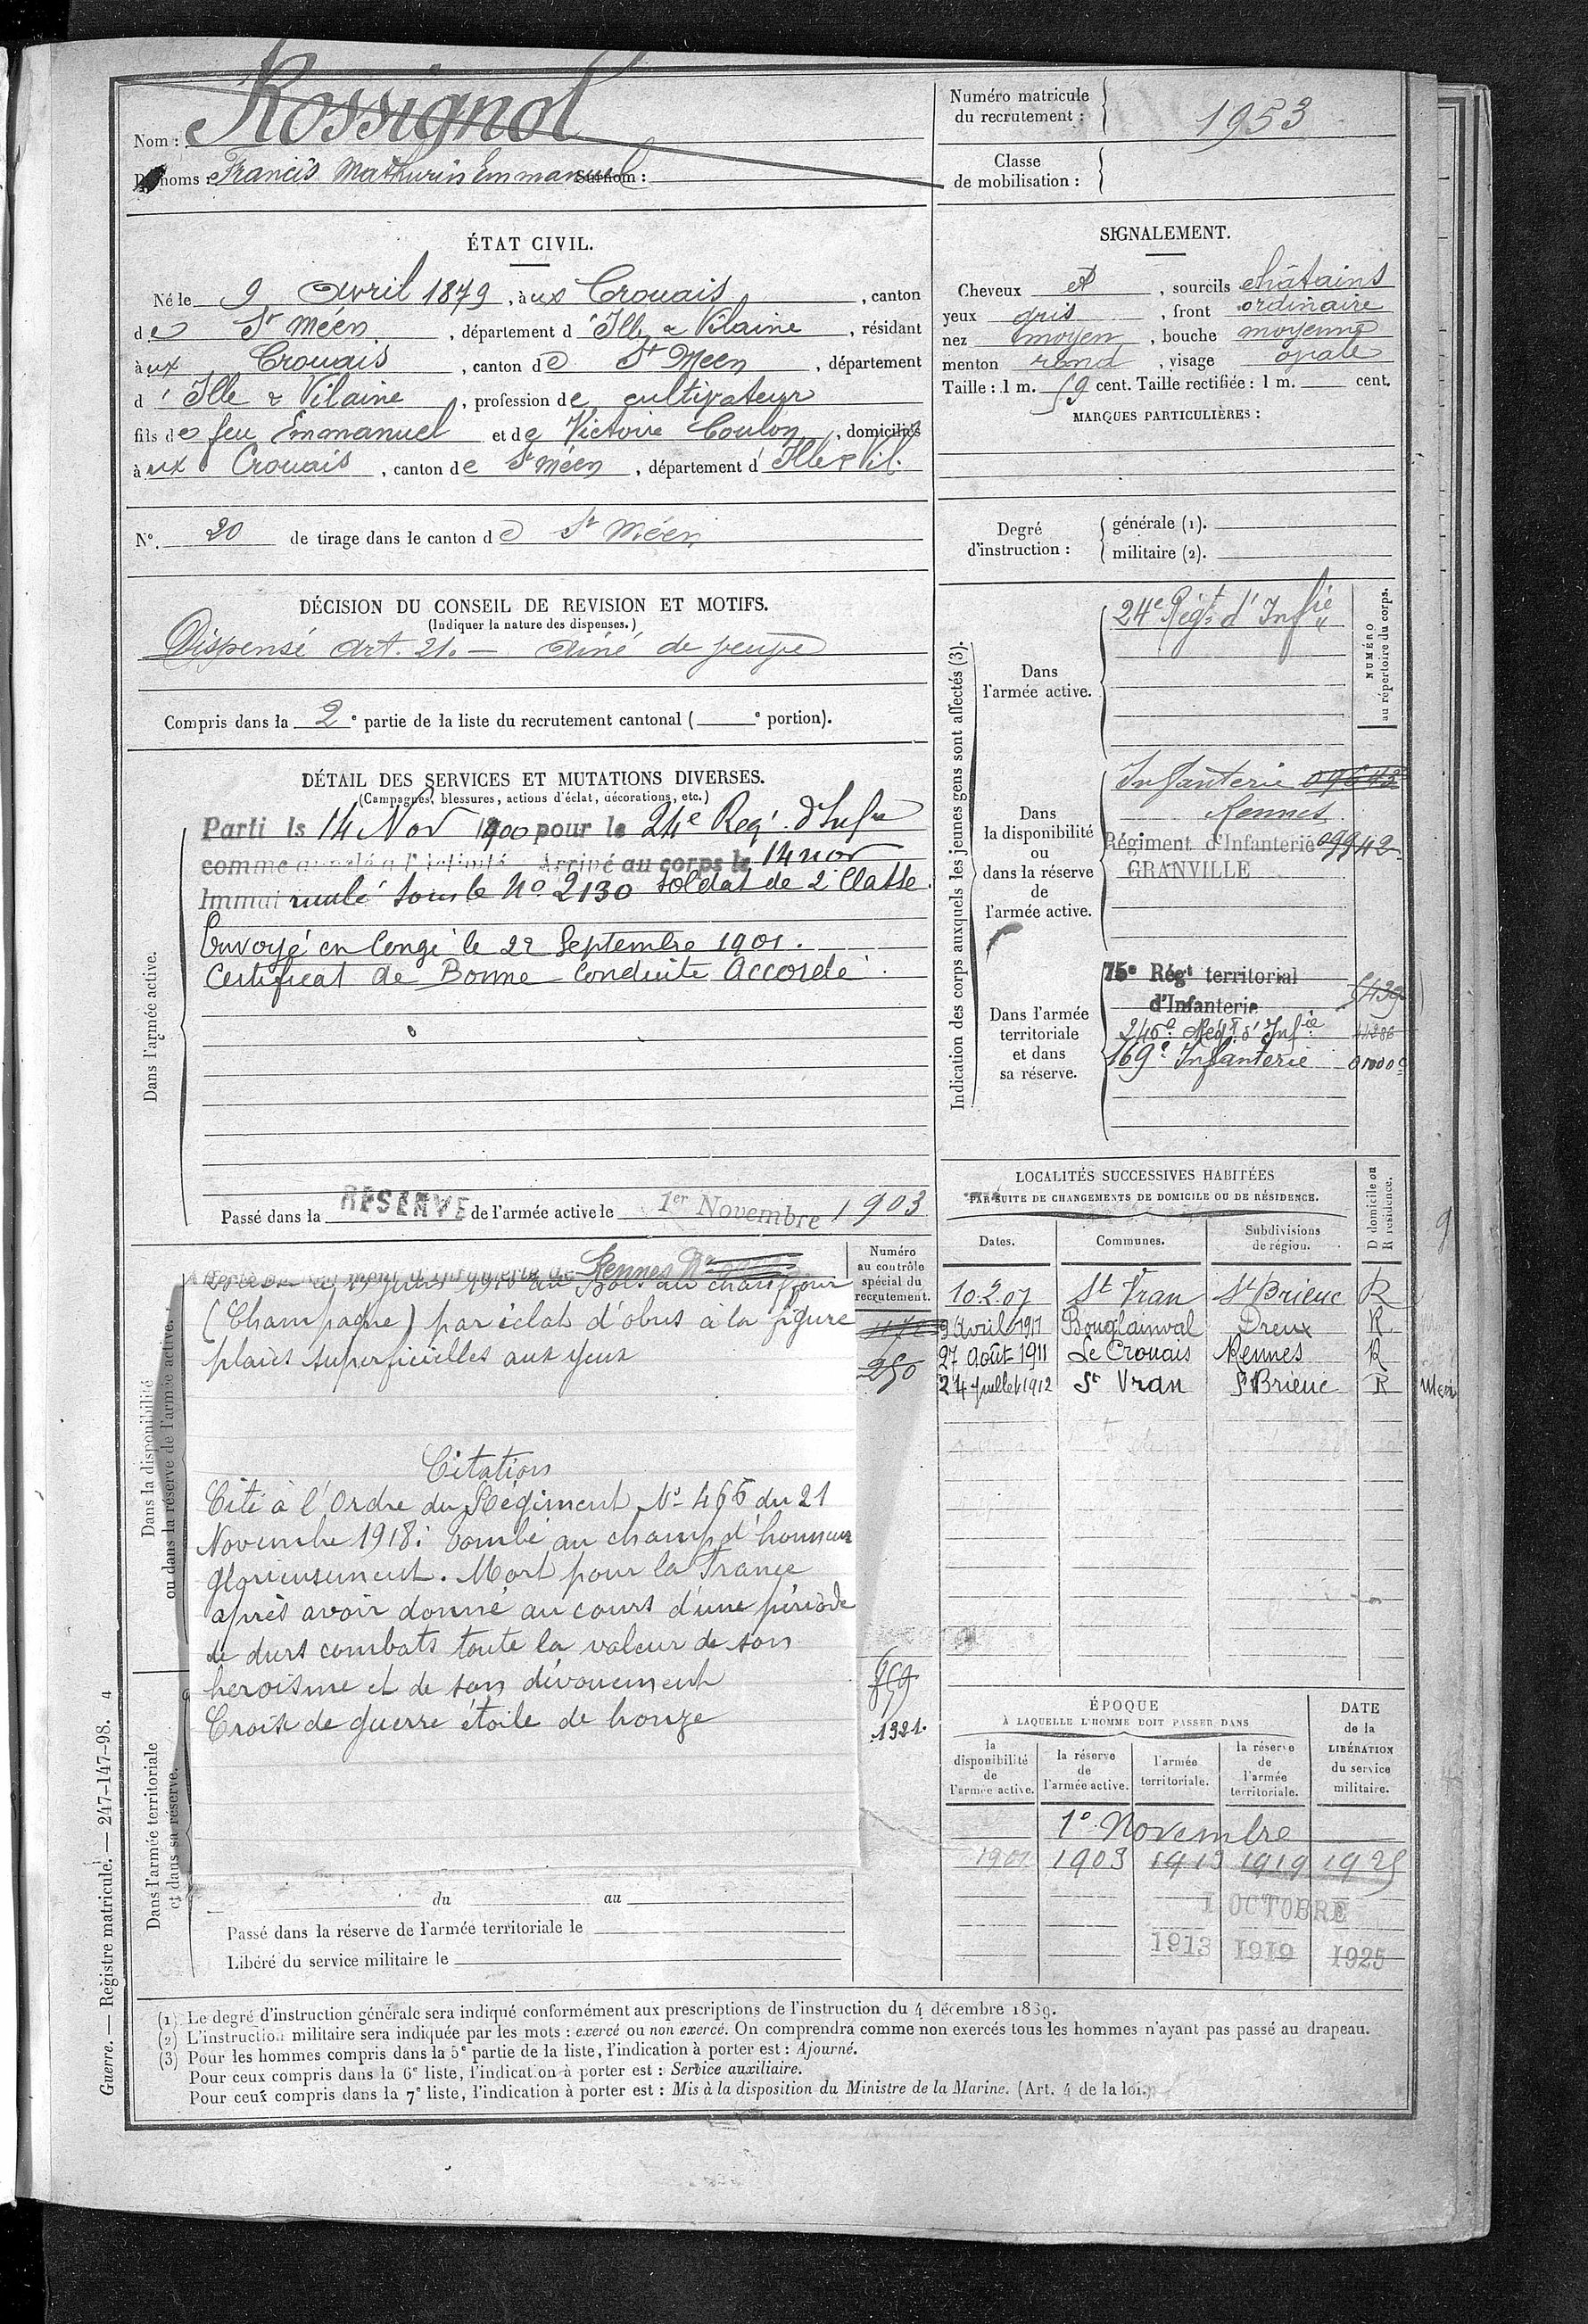 Nom : Rossignol
Prénoms : Francis Mathurin Emmanuel Surnom :
ÉTAT CIVIL.
Né le 9 Avril 1879, à ux Crouais, canton
de St Méen, département d'Ille & Vilaine, résidant
à ux Crouais, canton de St Meen, département
d'Ille & Vilaine, profession de cultivateur
fils de feu Emmanuel et de Victoire Coulon, domiciliés
à ux Crouais, canton de St Méen, département d'Ille & Vil.
N°. 20 de tirage dans le canton de St Méen
DÉCISION DU CONSEIL DE REVISION ET MOTIFS.
(Indiquer la nature des dispenses.)
Dispensé Art. 21. — Ainé de veuve
Compris dans la 2e partie de la liste du recrutement cantonal (____e portion).
DÉTAIL DES SERVICES ET MUTATIONS DIVERSES.
(Campagnes, blessures, actions d'éclat, décorations, etc.)
Dans l'armée active.
Parti le 14 Nov 1900 pour le 24e Regt. d'Infie
comme appelé à l'activité Arrivé au corps le 14 nov
Immatriculé sous le No 2130 soldat de 2e Classe.
Envoyé en Congé le 22 Septembre 1901.
Certificat de Bonne Conduite Accordé.
Passé dans la RÉSERVE de l'armée active le 1er Novembre 1903
Numéro
au contrôle
spécial du
recrutement.
Dans la disponibilité
ou dans la réserve de l'armée active.
Rennes
(Champagne) par éclat d'obus à la figure
plaies superficielles aux yeux
250
Citation
Cité à l'Ordre du Régiment No 466 du 21
Novembre 1918: Tombé au champ d'honneur
glorieusement. Mort pour la France
après avoir donné au cours d'une période
de durs combats toute la valeur de son
heroïsme et de son dévouement
Croix de guerre étoile de bronze
859
1321.
Dans l'armée territoriale
et dans sa réserve.
du au
Passé dans la réserve de l'armée territoriale le
Libéré du service militaire le
Numéro matricule
du recrutement : 1953
Classe
de mobilisation :
SIGNALEMENT.
Cheveux et, sourcils châtains
yeux gris, front ordinaire
nez moyen, bouche moyenne
menton rond, visage ovale
Taille : 1 m. 59 cent. Taille rectifiée : 1 m. ____ cent.
MARQUES PARTICULIÈRES :
Degré
d'instruction :
générale (1).
militaire (2).
Indication des corps auxquels les jeunes gens sont affectés (3).
NUMÉRO
au répertoire du corps.
Dans
l'armée active.
24e Régt. d'Infie
Dans
la disponibilité
ou
dans la réserve
de
l'armée active.
Infanterie 09642
Rennes
Régiment d'Infanterie 09942
GRANVILLE
Dans l'armée
territoriale
et dans
sa réserve.
75e Régt territorial
d'Infanterie 5439
246e Régt d'Infie
169e Infanterie
LOCALITÉS SUCCESSIVES HABITÉES
PAR SUITE DE CHANGEMENTS DE DOMICILE OU DE RÉSIDENCE.
Dates. Communes. Subdivisions
de région. D domicile ou
R résidence.
10.2.07 St Vran St Brieuc R
9 Avril 1911 Bouglainval Dreux R.
27 Août 1911 Le Crouais Rennes R
24 Juillet 1912 St Vran St Brieuc R
ÉPOQUE
À LAQUELLE L'HOMME DOIT PASSER DANS
DATE
de la
LIBÉRATION
du service
militaire.
la
disponibilité
de
l'armée active.
la réserve
de
l'armée active.
l'armée
territoriale.
la réserve
de
l'armée
territoriale.
1er Novembre
1901 1903 1913 1919 1925
1 OCTOBRE
1913 1919 1925
(1) Le degré d'instruction générale sera indiqué conformément aux prescriptions de l'instruction du 4 décembre 1889.
(2) L'instruction militaire sera indiquée par les mots : exercé ou non exercé. On comprendra comme non exercés tous les hommes n'ayant pas passé au drapeau.
(3) Pour les hommes compris dans la 5e partie de la liste, l'indication à porter est : Ajourné.
Pour ceux compris dans la 6e liste, l'indication à porter est : Service auxiliaire.
Pour ceux compris dans la 7e liste, l'indication à porter est : Mis à la disposition du Ministre de la Marine. (Art. 4 de la loi.)
Guerre. — Registre matricule. — 247-147-98. 4